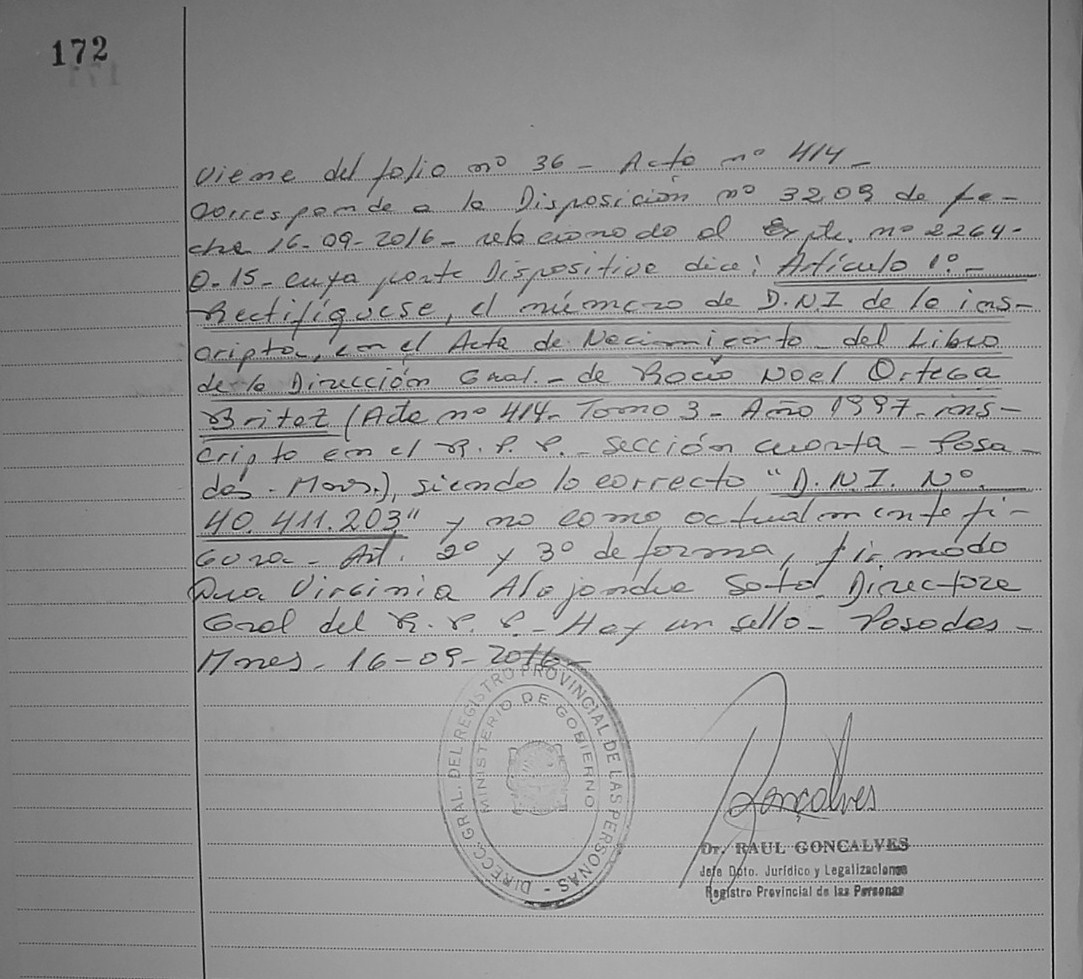 172
Viene del folio nº 36 - Acta nº 414 -
Corresponde a la Disposición nº 3209 de fe-
cha 16-09-2016 - relacionado al Expte. nº 2264-
O-15 - cuya parte Dispositiva dice: Artículo 1º. -
Rectifíquese, el número de D.N.I de la ins-
cripta, en el Acta de Nacimiento - del Libro
de la Dirección Gral. - de Rocío Noel Ortega
Britez (Acta nº 414 - Tomo 3 - Año 1997 - ins-
cripta en el R.P.P. - sección cuarta - Posa-
das - Mnes.), siendo lo correcto "D.N.I. Nº.
40.411.203" y no como actualmente fi-
gura - Art. 2º y 3º de forma, firmado
Dra Virginia Alejandra Soto - Directora
Gral del R.P.P. - Hay un sello - Posadas -
Mnes - 16-09-2016 -
DIRECC. GRAL. DEL REGISTRO PROVINCIAL DE LAS PERSONAS -
MINISTERIO DE GOBIERNO
Gonçalves
Dr. RAUL GONCALVES
Jefe Dpto. Jurídico y Legalizaciones
Registro Provincial de las Personas